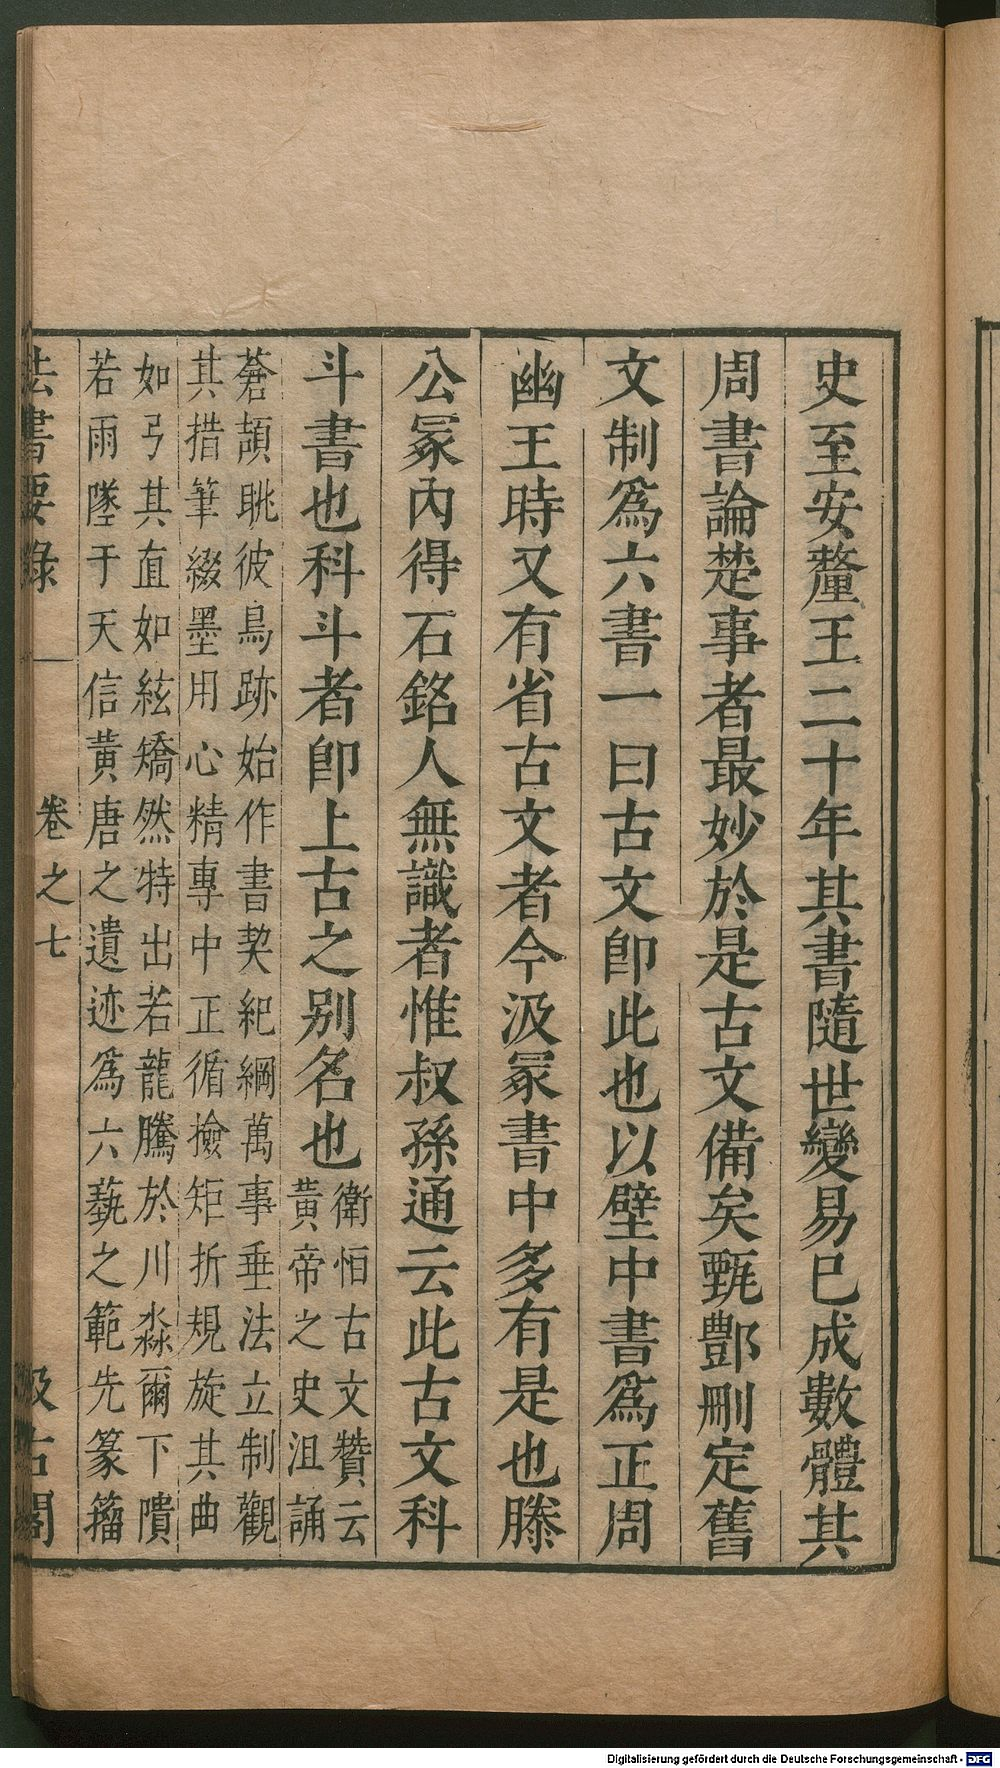 史至安釐王二十年其書隨世變易已成數體其
周書論楚事者最妙於是古文備矣甄酆刪定舊
文制爲六書一曰古文卽此也以壁中書爲正周
幽王時又有省古文者今汲冢書中多有是也滕
公冢內得石銘人無識者惟叔孫通云此古文科
斗書也科斗者卽上古之别名也
衛恒古文贊云
黃帝之史沮誦
蒼頡眺彼鳥跡始作書契紀綱萬事垂法立制觀
其措筆綴墨用心精專中正循撿矩折規旋其曲
如弓其直如絃矯然特出若龍騰於川淼爾下隤
若雨墜于天信黃唐之遺迹爲六蓺之範先篆籀
法書要錄 卷之七 汲古閣
Digitalisierung gefördert durch die Deutsche Forschungsgemeinschaft - DFG